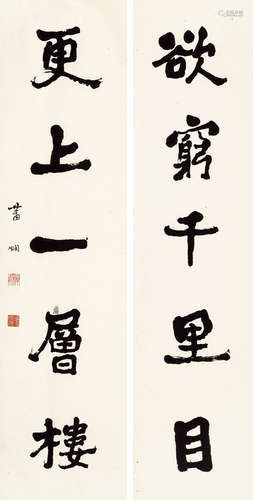 欲窮千里目
更上一層樓
萧嫻